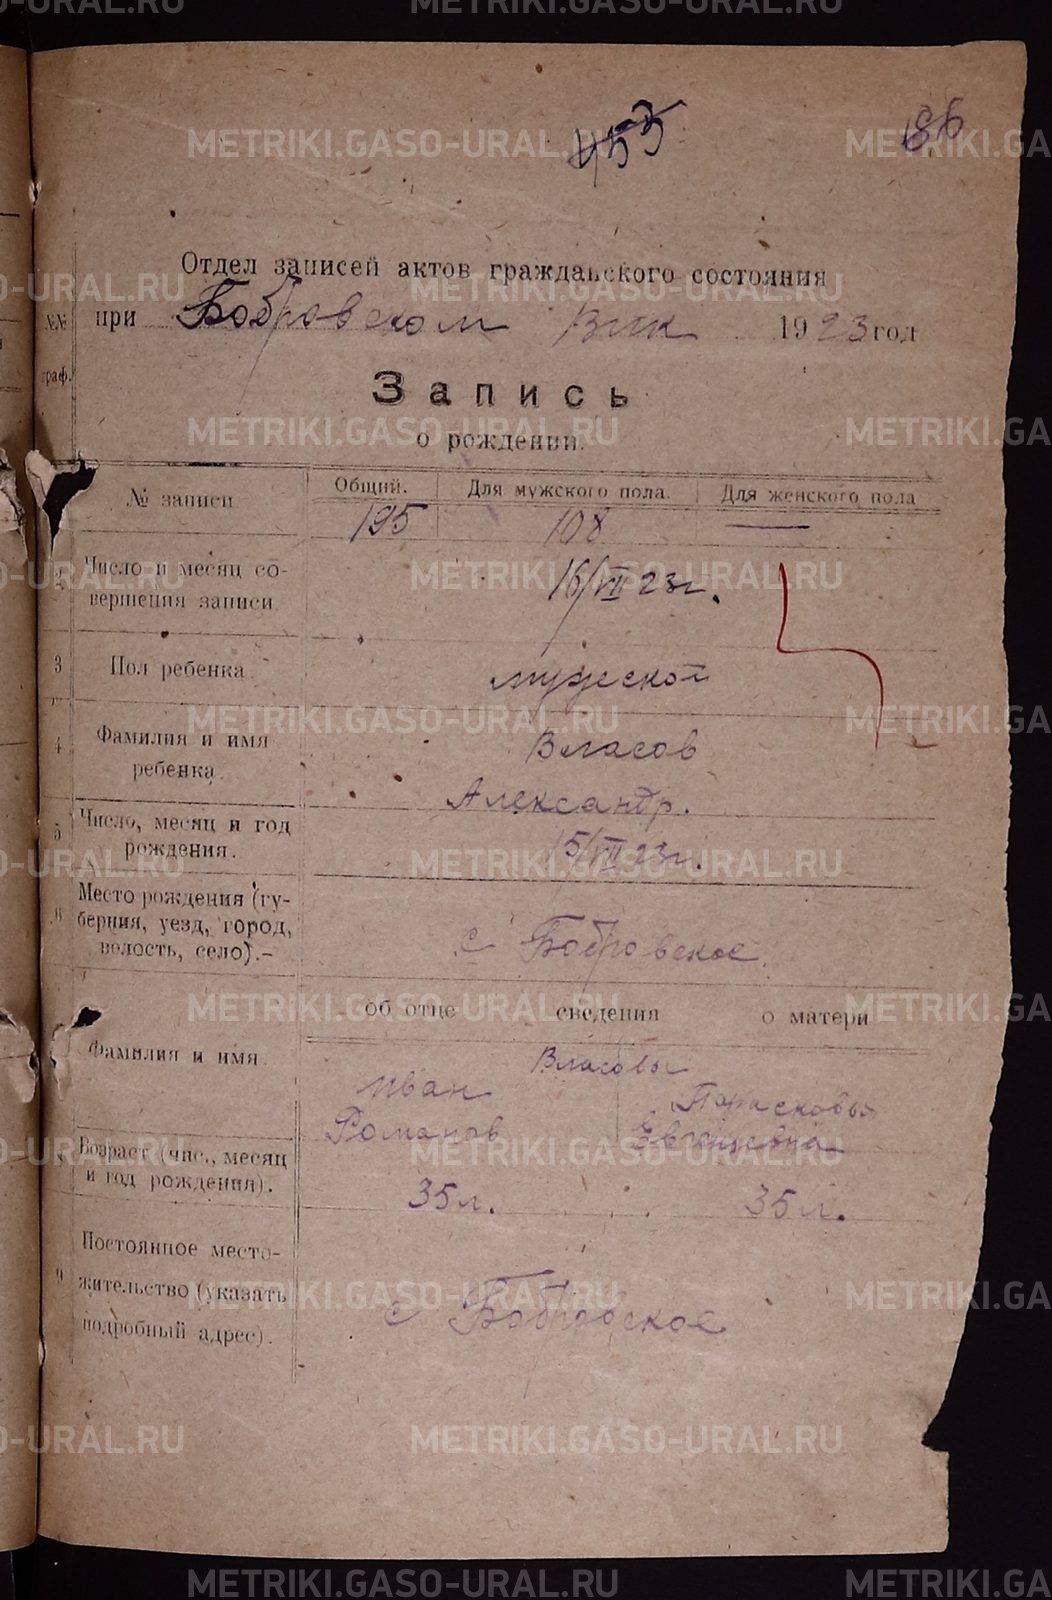 453
186
Отдел записей актов гражданского состояния
№№ при Бобровском Вик 1923 год
граф.
Запись
о рождении.
№ записи
Общий. Для мужского пола. Для женского пола
195 108 —
2 Число и месяц со-
вершения записи.
16/VII 23г.
3 Пол ребенка. мужской
4 Фамилия и имя
ребенка.
Власов
Александр.
5 Число, месяц и год
рождения.
15/VII 23г.
6 Место рождения (гу-
берния, уезд, город,
волость, село).-
с Бобровское.
об отце сведения о матери
Фамилия и имя.
Власовы
Иван Парасковья
Романов
Возраст (чис., месяц
и год рождения).
35л. 35л.
9 Постоянное место-
жительство (указать
подробный адрес).
с Бобровское
METRIKI.GASO-URAL.RU